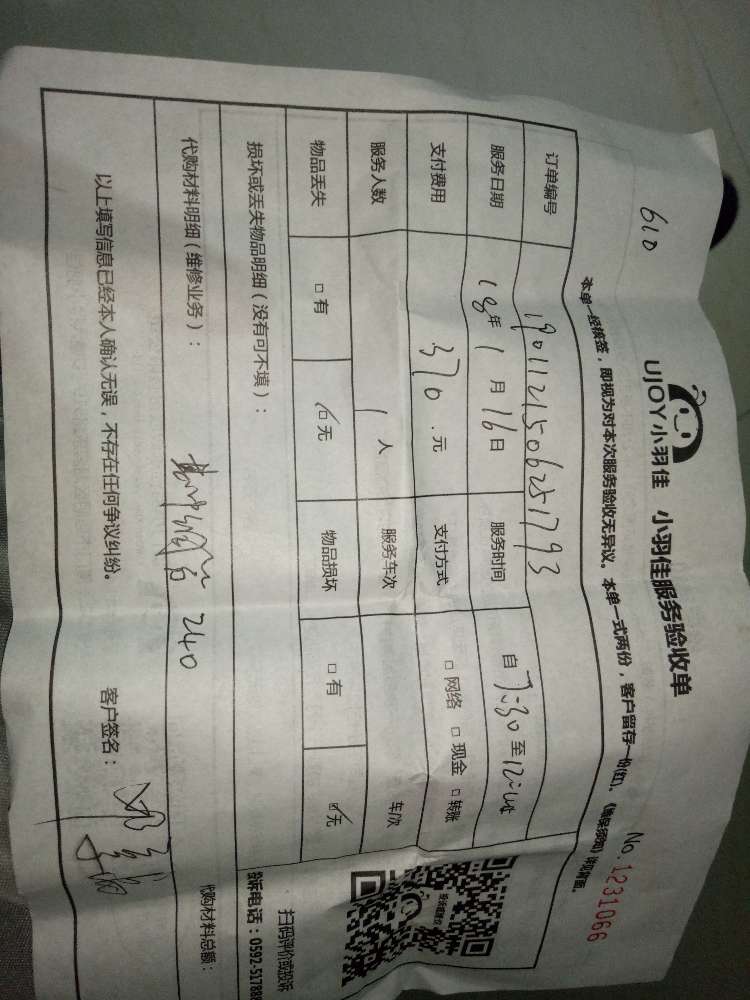 610
UJOY小羽佳 小羽佳服务验收单
No. 1231066
本单一经候签,即视为对本次服务验收无异议。本单一式两份,客户留存一份(红)。《维保须知》详见背面。
订单编号 1901121506251793
服务日期 18年1月16日 服务时间 自 至
支付费用 370.元 支付方式 □网络 □现金 □转账
服务人数 1人 服务车次 车/次
物品丢失 □有 ☑无 物品损坏 □有 ☑无
损坏或丢失物品明细(没有可不填):
代购材料明细(维修业务): 240 代购材料总额:
以上填写信息已经本人确认无误,不存在任何争议纠纷。 客户签名:
扫码评价或投诉
投诉电话:0592-51788